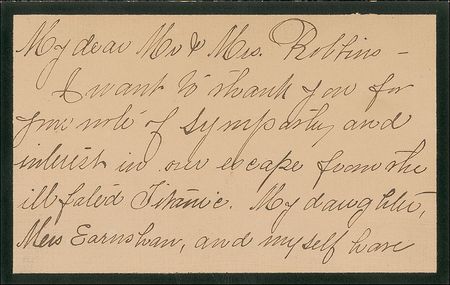 My dear Mr & Mrs. Robbins –
I want to thank you for
your note of sympathy and
interest in our escape from the
ill fated Titanic. My daughter,
Mrs Earnshaw, and myself have